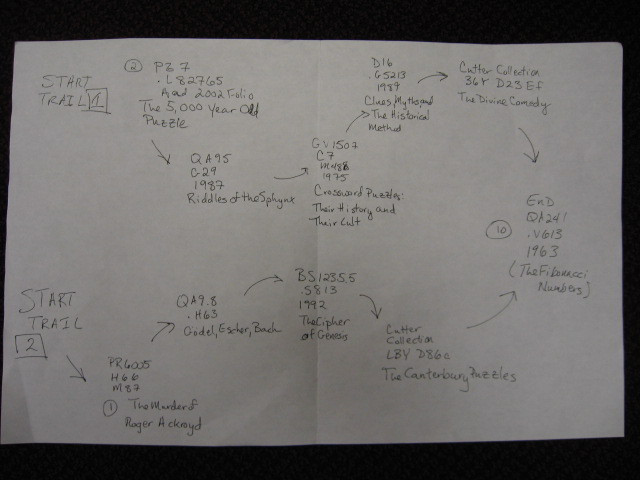 START
TRAIL 1
2
PZ7
.L82765
Agad 2002 Folio
The 5,000 Year Old
Puzzle
QA95
G29
1987
Riddles of the Sphynx
GV1507
C7
1975
Crossword Puzzles:
Their History and
Their Cult
D16
.G5213
1989
Clues, Myths, and
The Historical
Method
Cutter Collection
36Y D23Ef
The Divine Comedy
END
10
QA241
.V613
1963
(The Fibonacci
Numbers)
START
TRAIL
2
PR6005
H66
M87
1
The Murder of
Roger Ackroyd
QA9.8
.H63
Gödel, Escher, Bach
BS1235.5
.S813
1992
The Cipher
of Genesis
Cutter
Collection
LBY D86c
The Canterbury Puzzles